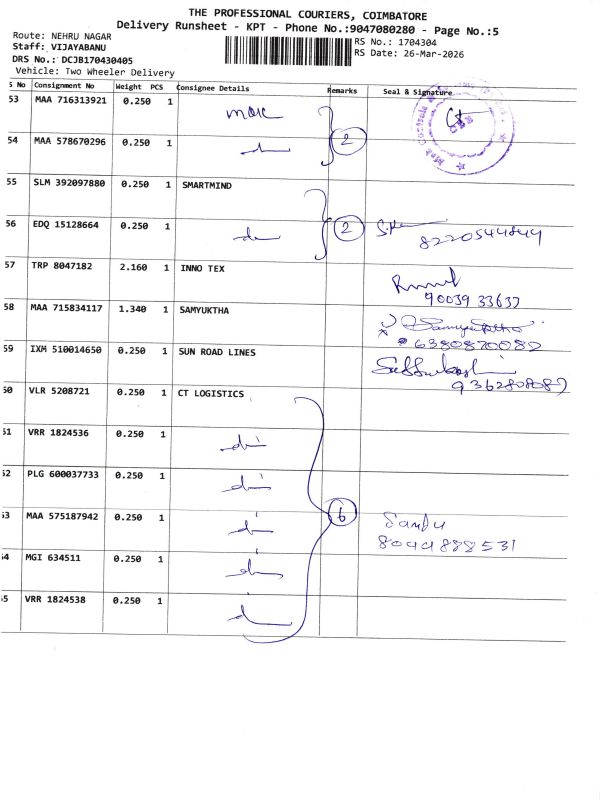 THE PROFESSIONAL COURIERS, COIMBATORE
Delivery Runsheet - KPT - Phone No.:9047080280 - Page No.:5
Route: NEHRU NAGAR
Staff: VIJAYABANU
DRS No.: DCJB170430405
Vehicle: Two Wheeler Delivery
RS No.: 1704304
RS Date: 26-Mar-2026
S No Consignment No Weight PCS Consignee Details Remarks Seal & Signature
53 MAA 716313921 0.250 1
54 MAA 578670296 0.250 1 2
55 SLM 392097880 0.250 1 SMARTMIND
56 EDQ 15128664 0.250 1 2
8220544844
57 TRP 8047182 2.160 1 INNO TEX
90039 33637
58 MAA 715834117 1.340 1 SAMYUKTHA
6380870082
59 IXM 510014650 0.250 1 SUN ROAD LINES
9362808087
60 VLR 5208721 0.250 1 CT LOGISTICS
61 VRR 1824536 0.250 1
62 PLG 600037733 0.250 1
63 MAA 575187942 0.250 1 6
64 MGI 634511 0.250 1
65 VRR 1824538 0.250 1